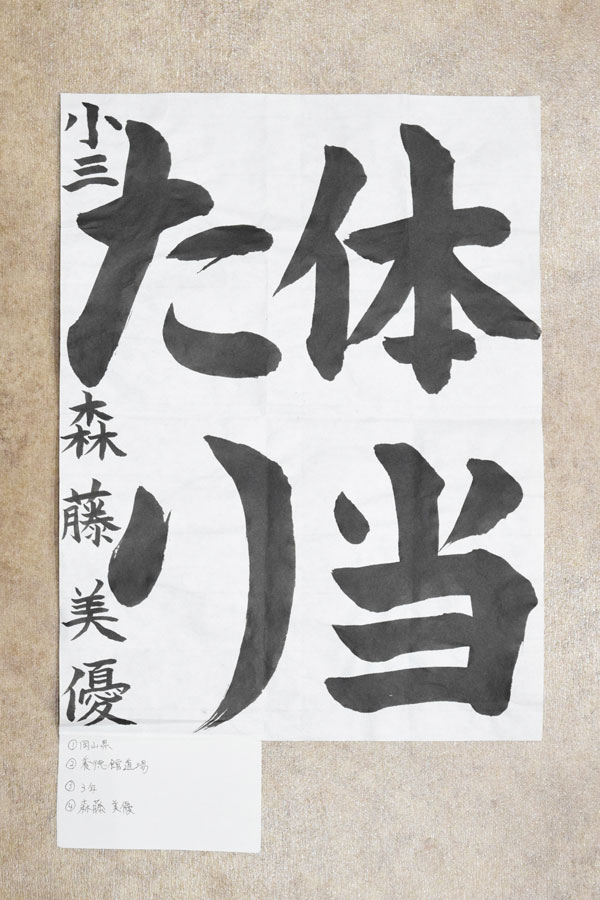 体当
たり
小三 森藤美優
①岡山県
②養徳館道場
③3年
④森藤 美優